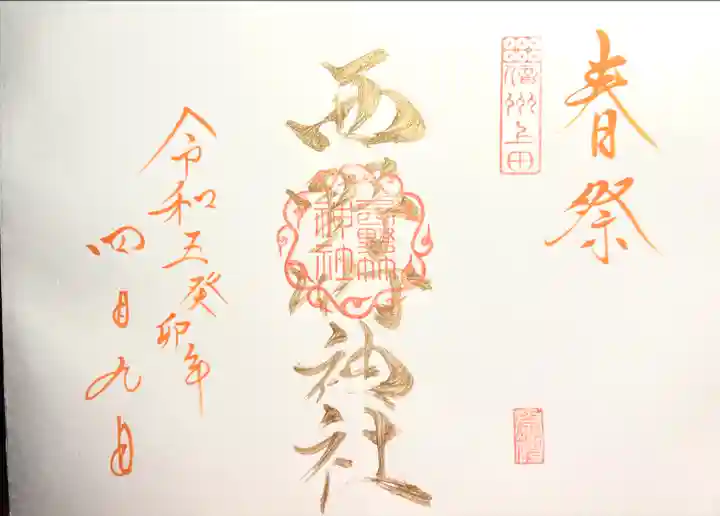 春祭
信州上田
西野竹神社
令和五癸卯年
四月九日